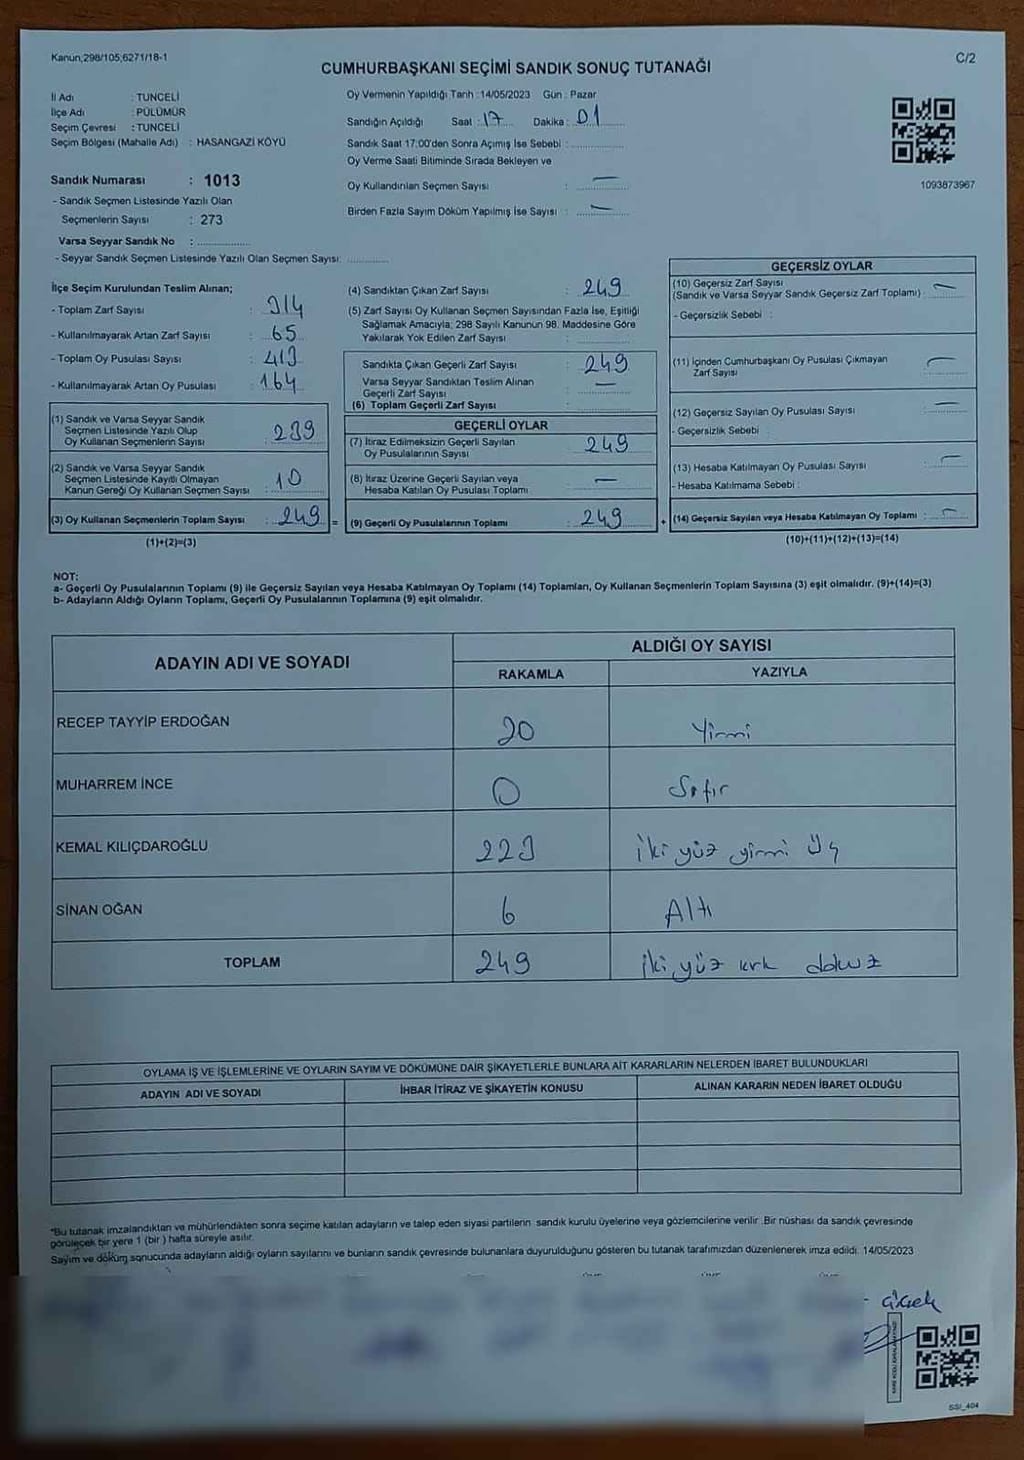 Kanun;298/105;6271/18-1
C/2
CUMHURBAŞKANI SEÇİMİ SANDIK SONUÇ TUTANAĞI
İl Adı : TUNCELİ
İlçe Adı : PÜLÜMÜR
Seçim Çevresi : TUNCELİ
Seçim Bölgesi (Mahalle Adı) : HASANGAZİ KÖYÜ
Sandık Numarası : 1013
- Sandık Seçmen Listesinde Yazılı Olan
Seçmenlerin Sayısı : 273
Varsa Seyyar Sandık No :
- Seyyar Sandık Seçmen Listesinde Yazılı Olan Seçmen Sayısı:
Oy Vermenin Yapıldığı Tarih :14/05/2023 Gün : Pazar
Sandığın Açıldığı Saat : 17 Dakika : 01
Sandık Saat 17:00'den Sonra Açımış İse Sebebi :
Oy Verme Saati Bitiminde Sırada Bekleyen ve
Oy Kullandırılan Seçmen Sayısı : —
Birden Fazla Sayım Döküm Yapılmış İse Sayısı : —
1093873967
İlçe Seçim Kurulundan Teslim Alınan;
- Toplam Zarf Sayısı : 314
- Kullanılmayarak Artan Zarf Sayısı : 65
- Toplam Oy Pusulası Sayısı : 413
- Kullanılmayarak Artan Oy Pusulası : 164
(1) Sandık ve Varsa Seyyar Sandık
Seçmen Listesinde Yazılı Olup
Oy Kullanan Seçmenlerin Sayısı : 239
(2) Sandık ve Varsa Seyyar Sandık
Seçmen Listesinde Kayıtlı Olmayan
Kanun Gereği Oy Kullanan Seçmen Sayısı : 10
(3) Oy Kullanan Seçmenlerin Toplam Sayısı : 249 =
(1)+(2)=(3)
(4) Sandıktan Çıkan Zarf Sayısı : 249
(5) Zarf Sayısı Oy Kullanan Seçmen Sayısından Fazla İse, Eşitliği
Sağlamak Amacıyla; 298 Sayılı Kanunun 98. Maddesine Göre
Yakılarak Yok Edilen Zarf Sayısı :
Sandıkta Çıkan Geçerli Zarf Sayısı : 249
Varsa Seyyar Sandıktan Teslim Alınan
Geçerli Zarf Sayısı : —
(6) Toplam Geçerli Zarf Sayısı :
GEÇERLİ OYLAR
(7) İtiraz Edilmeksizin Geçerli Sayılan
Oy Pusulalarının Sayısı : 249
(8) İtiraz Üzerine Geçerli Sayılan veya
Hesaba Katılan Oy Pusulası Toplamı : —
(9) Geçerli Oy Pusulalarının Toplamı : 249 +
GEÇERSİZ OYLAR
(10) Geçersiz Zarf Sayısı
(Sandık ve Varsa Seyyar Sandık Geçersiz Zarf Toplamı) : —
- Geçersizlik Sebebi :
(11) İçinden Cumhurbaşkanı Oy Pusulası Çıkmayan
Zarf Sayısı : —
(12) Geçersiz Sayılan Oy Pusulası Sayısı : —
- Geçersizlik Sebebi :
(13) Hesaba Katılmayan Oy Pusulası Sayısı : —
- Hesaba Katılmama Sebebi :
(14) Geçersiz Sayılan veya Hesaba Katılmayan Oy Toplamı : —
(10)+(11)+(12)+(13)=(14)
NOT:
a- Geçerli Oy Pusulalarının Toplamı (9) ile Geçersiz Sayılan veya Hesaba Katılmayan Oy Toplamı (14) Toplamları, Oy Kullanan Seçmenlerin Toplam Sayısına (3) eşit olmalıdır. (9)+(14)=(3)
b- Adayların Aldığı Oyların Toplamı, Geçerli Oy Pusulalarının Toplamına (9) eşit olmalıdır.
ADAYIN ADI VE SOYADI ALDIĞI OY SAYISI
RAKAMLA YAZIYLA
RECEP TAYYİP ERDOĞAN 20 Yirmi
MUHARREM İNCE 0 Sıfır
KEMAL KILIÇDAROĞLU 223 iki yüz yirmi Üç
SİNAN OĞAN 6 Altı
TOPLAM 249 iki yüz kırk dokuz
OYLAMA İŞ VE İŞLEMLERİNE VE OYLARIN SAYIM VE DÖKÜMÜNE DAİR ŞİKAYETLERLE BUNLARA AİT KARARLARIN NELERDEN İBARET BULUNDUKLARI
ADAYIN ADI VE SOYADI İHBAR İTİRAZ VE ŞİKAYETİN KONUSU ALINAN KARARIN NEDEN İBARET OLDUĞU
*Bu tutanak imzalandıktan ve mühürlendikten sonra seçime katılan adayların ve talep eden siyasi partilerin sandık kurulu üyelerine veya gözlemcilerine verilir. Bir nüshası da sandık çevresinde
görülecek bir yere 1 (bir ) hafta süreyle asılır.
Sayım ve döküm sonucunda adayların aldığı oyların sayılarını ve bunların sandık çevresinde bulunanlara duyurulduğunu gösteren bu tutanak tarafımızdan düzenlenerek imza edildi. 14/05/2023
SSI_404